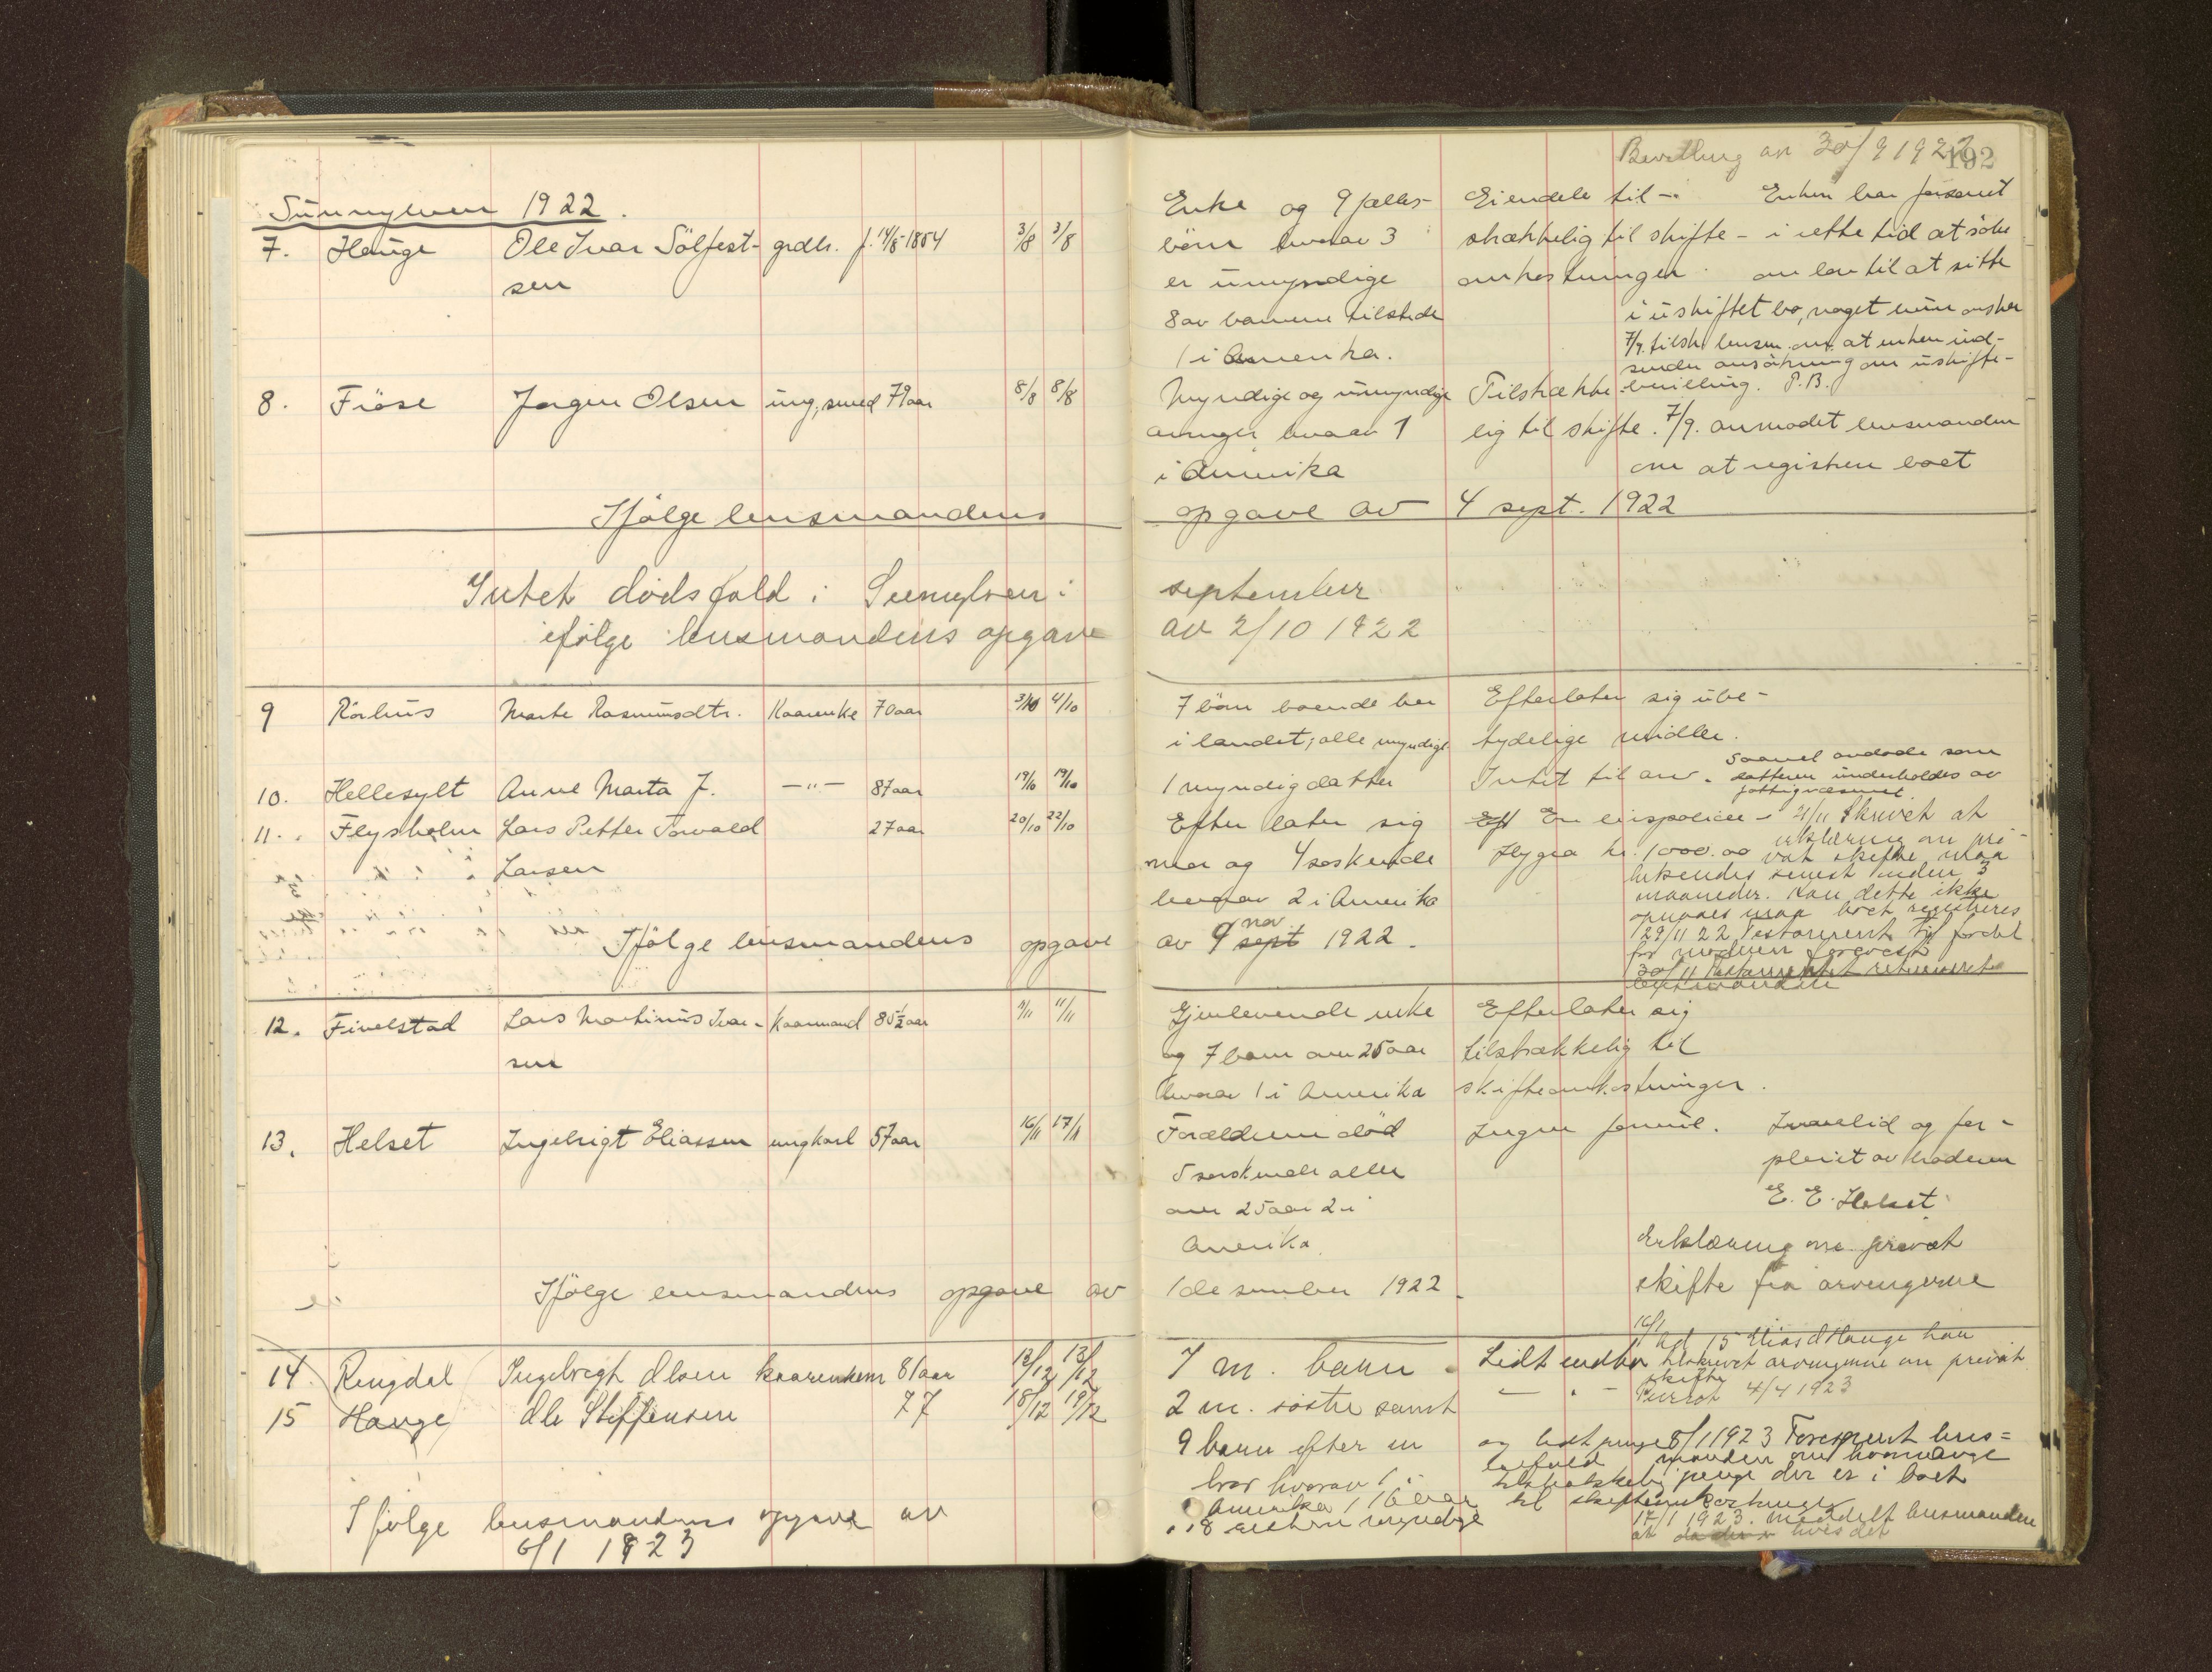 Bevilling av 30/9 1922
192
Sunnylven 1922.
7. Hauge Ole Ivar Sölfest- grdbr. f. 14/8-1854 3/8 3/8
sen
Enke og 9 fælles-
börn hvorav 3
er umyndige
8 av barnene tilstede
1 i Amerika.
Eiendele til-
strækkelig til skifte-
omkostninger.
Enken har forsømt
i rette tid at söke
om lov til at sitte
i uskiftet bo, noget hun ønsker
7/9. tilskr. lensm. om at enken ind-
sender ansökning om uskifte-
bevilling. P.B.
8. Frøse Jørgen Olsen ung, smed 79 aar 8/8 8/8
Myndige og umyndige
arvinger hvorav 1
i Amerika
Tilstrække-
lig til skifte.
7/9. anmodet lensmanden
om at registrere boet
Ifölge lensmandens opgave av 4 sept. 1922
Intet dödsfald i Sunnylven i september
ifølge lensmandens opgave av 2/10 1922
9 Rörhus Marte Rasmusdtr. Kaarenke 70 aar 3/10 4/10
7 börn boende her
i landet, alle myndige
Efterlater sig ube-
tydelige midler.
10. Hellesylt Anne Marta J. —"— 87 aar 19/10 19/10
1 myndig datter
Intet til arv.
Saavel avdøde som
datteren underholdes av
fattigvæsenet
11. Flysholm Lars Petter Torvald 27 aar 20/10 22/10
Larsen
Efterlater sig
mor og 4 søskende
hvorav 2 i Amerika
Eft En livspolice i
Hygea kr. 1000.00
21/11 Skrevet at
erklæring om pri-
vat skifte maa
indsendes senest inden 3
maaneder. Kan dette ikke
opnaaes maa boet registreres
29/11 22 Testament til fordel
for moderen forevist
30/11 Testamentet returneret
lensmanden
Ifölge lensmandens opgave av 9 sept nov 1922.
12. Fivelstad Lars Martinus Ivar- Kaarmand 85 1/2 aar 9/11 11/11
sen
Gjenlevende enke
og 7 barn over 25 aar
hvorav 1 i Amerika
Efterlater sig
tilstrækkelig til
skifteomkostninger.
13. Helset Ingebrigt Eliassen ungkarl 57 aar 16/11 17/11
Forældrene död
5 søskende alle
over 25 aar 2 i
Amerika.
Ingen formue.
Invalid og for-
pleiet av broderen
E. E. Helset
Erklæring om privat
skifte fra arvingerne
Ifölge lensmandens opgave av 1 desember 1922.
14. Ringdal Ingebrigt Olsen kaarenkem 81 aar 12/12 13/12
7 m. barn
Lidt indbo
16/1 Ad 15 Elias O Hauge har
tilskrevet arvingerne om privat
skifte
Purret 4/4 1923
15 Hauge Ole Steffensen 77 18/12 19/12
2 m. søstre samt
9 barn efter en
bror hvorav 1 i
Amerika
8 myndige
— " —
og lidt penge
tilstrækkelig
til skifteomkostninger
8/1 1923 Forespurt lens=
manden om hvormange
penge der er i boet
17/1 1923. meddelt lensmanden
at hvis det
Ifølge lensmandens opgave av
6/1 1923